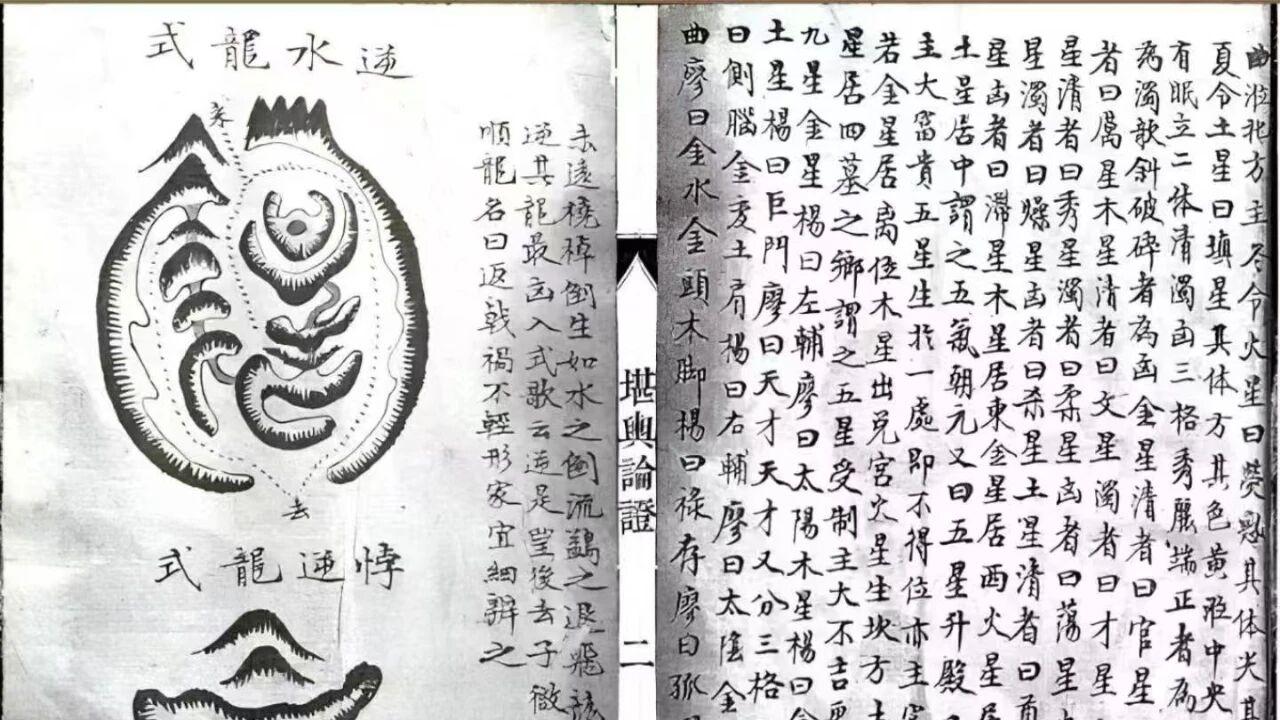 曲涖北方主冬令火星曰熒惑其体尖其
夏令土星曰填星其体方其色黄涖中央
有眠立二体清濁凶三格秀麗端正者為
為濁欹斜破碎者為凶金星清者曰官星
者曰厲星木星清者曰文星濁者曰才星
星清者曰秀星濁者曰柔星凶者曰蕩星
星濁者曰燥星凶者曰杀星土星清者曰
星凶者曰滞星木星居東金星居西火星居
土星居中謂之五氣朝元又曰五星升殿
主大富貴五星生於一處即不得位亦主
若金星居离位木星出兑宫火星生坎方土
星居四墓之鄉謂之五星受制主大不吉
九星金星楊曰左輔廖曰太陽木星楊曰
土星楊曰巨門廖曰天才天才又分三格
曰側腦金变土肩楊曰右輔廖曰太陰金
曲廖曰金水金頭木脚楊曰禄存廖曰孤
堪輿論證
二
逆水龍式
来
去
去遠橈棹倒生如水之倒流鷁之退飛該
逆其龍最凶入式歌云逆是望後去子微
順龍名曰返戟禍不輕形家宜細辨之
悖逆龍式